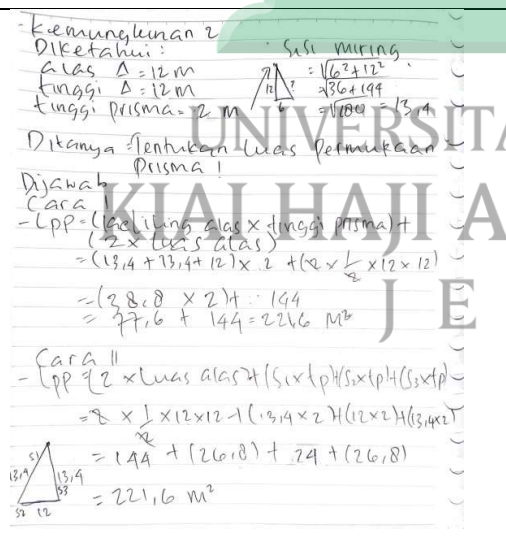 - Kemungkinan 2
Diketahui:
alas Δ = 12 m
tinggi Δ = 12 m
tinggi prisma = 2 m
Sisi miring
= √6² + 12²
= √36 + 144
= √180 = 13,4
12
6
?
Ditanya = Tentukan Luas Permukaan Prisma !
Dijawab
Cara I
- Lpp = (keliling alas x tinggi prisma) +
(2 x luas alas)
= (13,4 + 13,4 + 12) x 2 + (2 x 1/2 x 12 x 12)
= (38,8 x 2) + 144
= 77,6 + 144 = 221,6 m²
Cara II
- Lpp = (2 x Luas alas) + (S1 x tp) + (S2 x tp) + (S3 x tp)
= 2 x 1/2 x 12 x 12 + (13,4 x 2) + (12 x 2) + (13,4 x 2)
= 144 + (26,8) + 24 + (26,8)
= 221,6 m²
S1
13,4
13,4
S3
S2 12
UNIVERSITA
KIAI HAJI A
J E